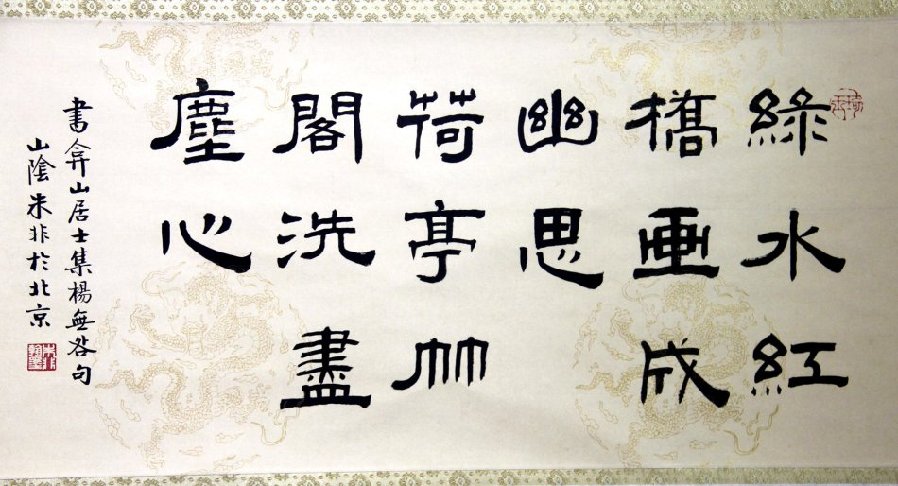 綠水紅
橋畫成
幽思
荷亭竹
閣洗盡
塵心
書弇山居士集楊無咎句
山陰朱非於北京